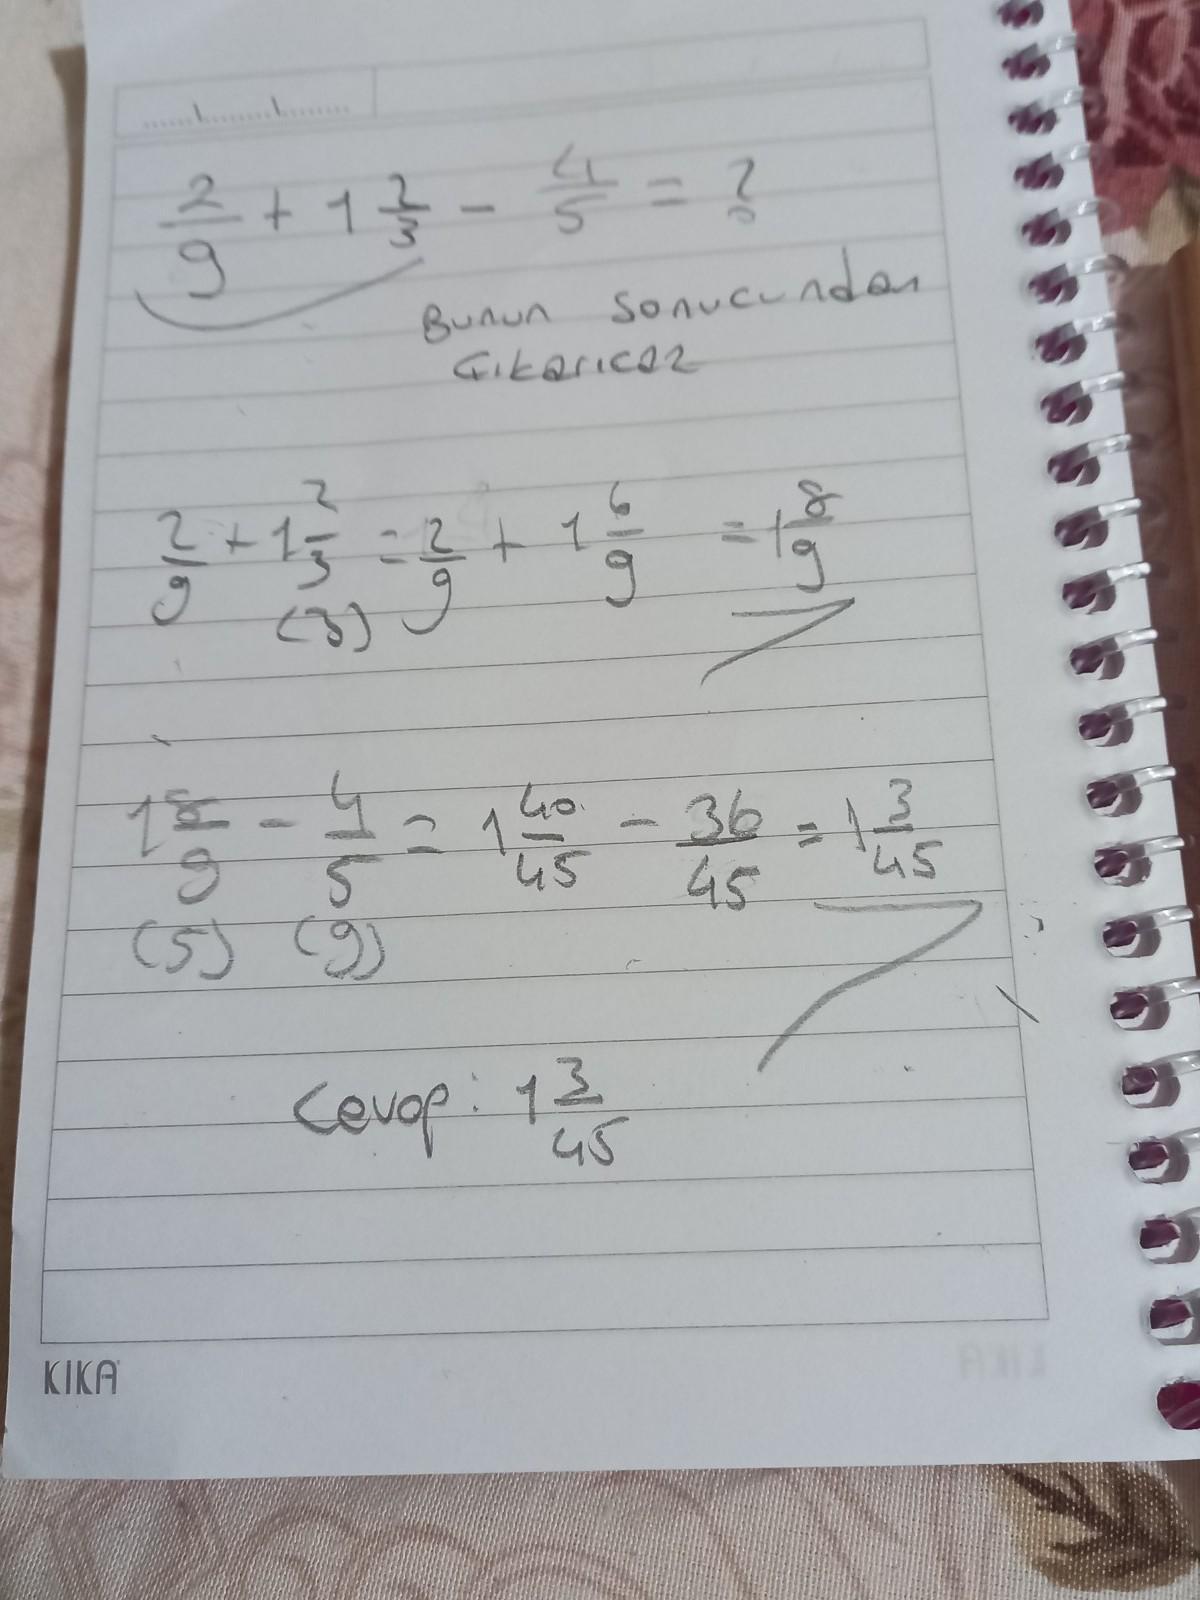 2/9 + 1 2/3 - 4/5 = ?
Bunun sonucundan
Çıkarıcaz
2/9 + 1 2/3 = 2/9 + 1 6/9 = 1 8/9
(3)
1 8/9 - 4/5 = 1 40/45 - 36/45 = 1 3/45
(5) (9)
Cevap: 1 3/45
KIKA